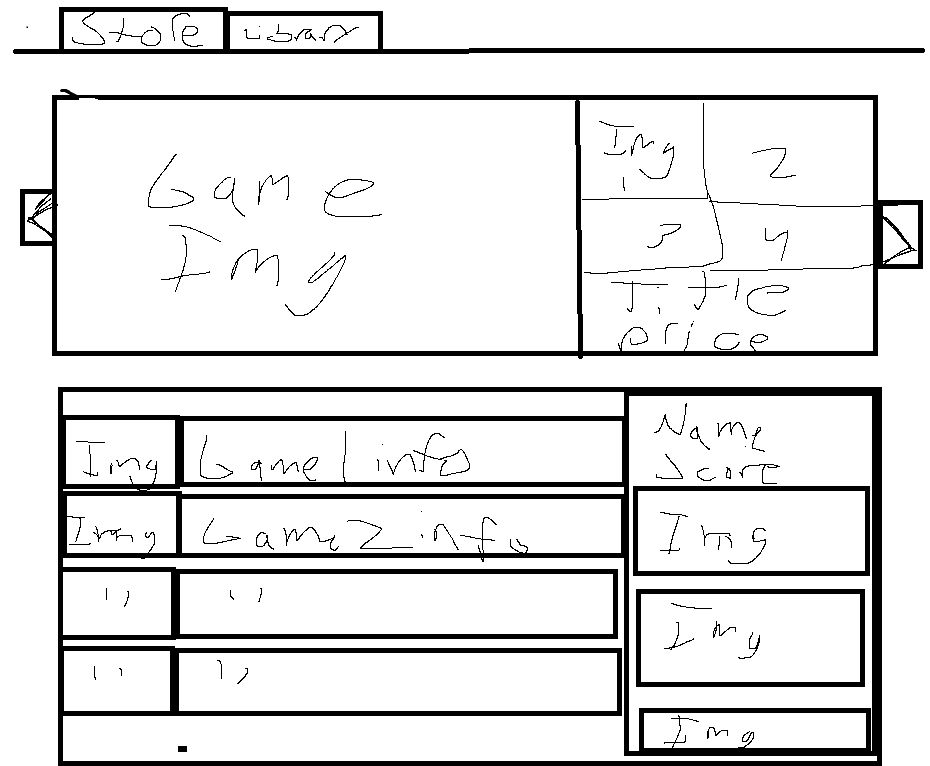 Store
Library
Game
Img
Img
1
2
3
4
Title
price
Img
Game 1 info
Img
Game 2 info
" "
" "
" "
" "
Name
Score
Img
Img
Img